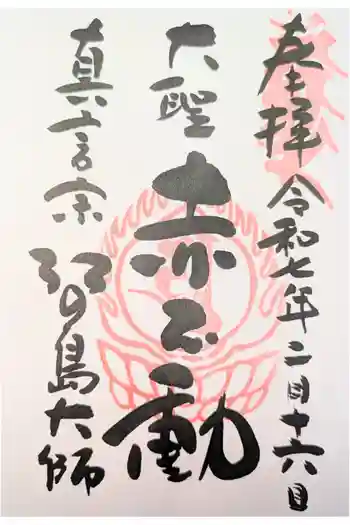 奉拝
令和七年二月十六日
大聖
赤不動
真言宗
江の島大師